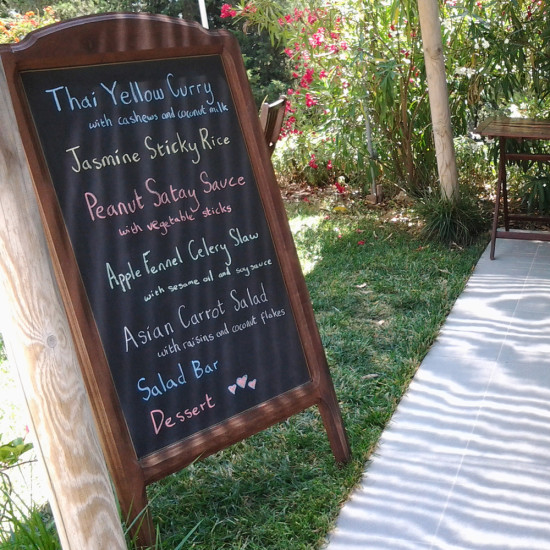 Thai Yellow Curry
with cashews and coconut milk
Jasmine Sticky Rice
Peanut Satay Sauce
with vegetable sticks
Apple Fennel Celery Slaw
with sesame oil and soy sauce
Asian Carrot Salad
with raisins and coconut flakes
Salad Bar
Dessert